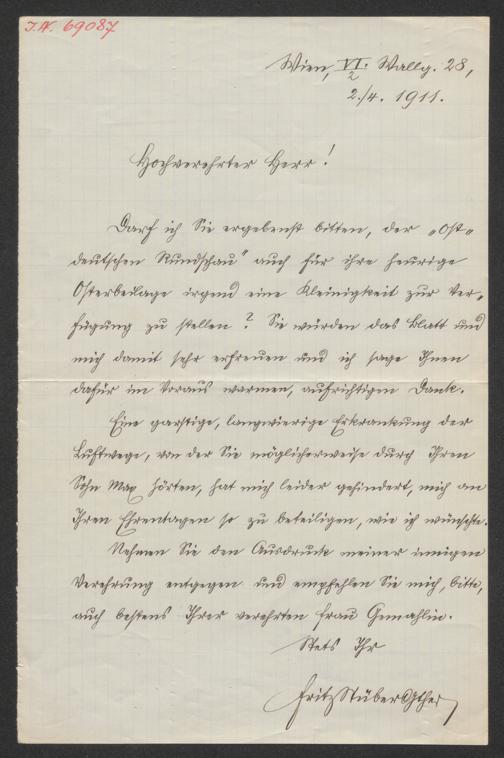 I.N. 69087
Wien, VI/2. Wallg. 28,
2./4. 1911.
Hochverehrter Herr!
Darf ich Sie ergebenst bitten, der „Ost-
deutschen Rundschau" auch für ihre heurige
Osterbeilage irgend eine Kleinigkeit zur Ver-
fügung zu stellen? Sie würden das Blatt und
mich damit sehr erfreuen und ich sage Ihnen
dafür im Voraus warmen, aufrichtigen Dank.
Eine garstige, langwierige Erkrankung der
Luftwege, von der Sie möglicherweise durch Ihren
Sohn Max hörten, hat mich leider gehindert, mich an
Ihren Ehrentagen so zu beteiligen, wie ich wünschte.
Nehmen Sie den Ausdruck meiner innigen
Verehrung entgegen und empfehlen Sie mich, bitte,
auch bestens Ihrer verehrten Frau Gemahlin.
Stets Ihr
Fritz Stüber Gunther